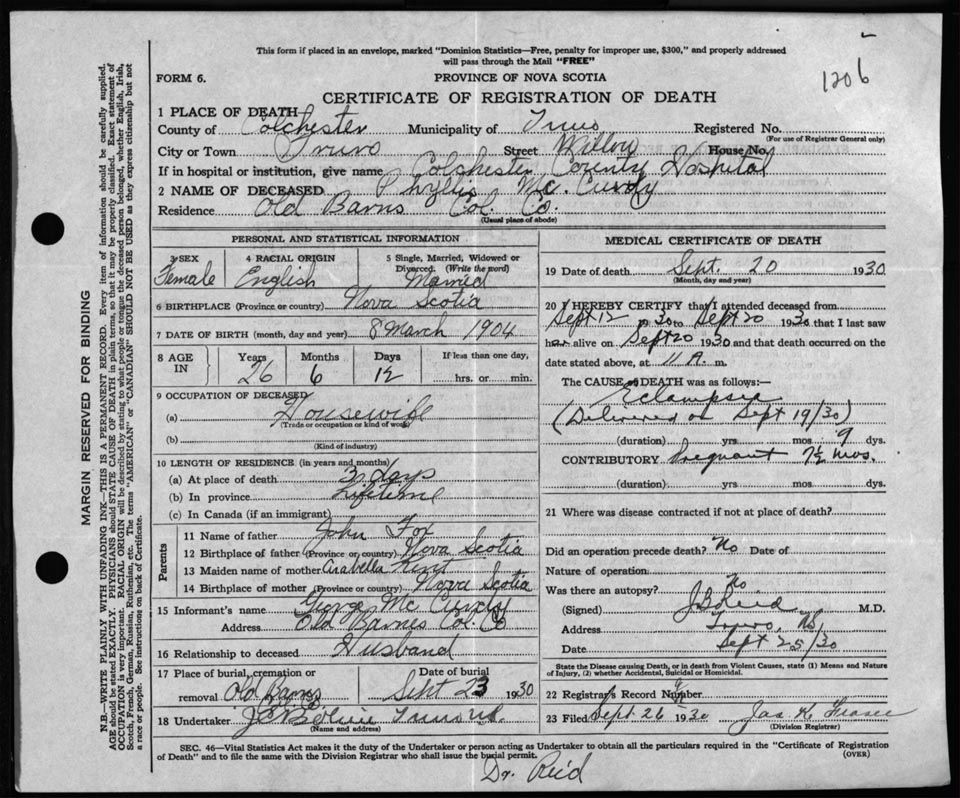 1206
This form if placed in an envelope, marked "Dominion Statistics—Free, penalty for improper use, $300," and properly addressed
will pass through the Mail "FREE"
FORM 6. PROVINCE OF NOVA SCOTIA
CERTIFICATE OF REGISTRATION OF DEATH
1 PLACE OF DEATH
County of Colchester Municipality of Truro Registered No.
(For use of Registrar General only)
City or Town Truro Street Willow House No.
If in hospital or institution, give name Colchester County Hospital
2 NAME OF DECEASED Phyllis Mc. Curdy
Residence Old Barns Col. Co.
(Usual place of abode)
PERSONAL AND STATISTICAL INFORMATION
3 SEX 4 RACIAL ORIGIN 5 Single, Married, Widowed or
Divorced. (Write the word)
Female English Married
6 BIRTHPLACE (Province or country) Nova Scotia
7 DATE OF BIRTH (month, day and year) 8 March 1904
8 AGE IN Years Months Days If less than one day,
26 6 12 hrs. or min.
9 OCCUPATION OF DECEASED
(a) Housewife
(Trade or occupation or kind of work)
(b)
(Kind of industry)
10 LENGTH OF RESIDENCE (in years and months)
(a) At place of death 3 days
(b) In province Lifetime
(c) In Canada (if an immigrant)
Parents
11 Name of father John Fox
12 Birthplace of father (Province or country) Nova Scotia
13 Maiden name of mother Arabella
14 Birthplace of mother (Province or country) Nova Scotia
15 Informant's name George Mc Curdy
Address Old Barnes Col. Co
16 Relationship to deceased Husband
17 Place of burial, cremation or Date of burial
removal Old Barns Sept 23 1930
18 Undertaker Truro N.S.
(Name and address)
MEDICAL CERTIFICATE OF DEATH
19 Date of death Sept. 20 1930
(Month, day and year)
20 I HEREBY CERTIFY that I attended deceased from
Sept 12 1930 to Sept 20 1930 that I last saw
her alive on Sept 20 1930 and that death occurred on the
date stated above, at 11 A. m.
The CAUSE of DEATH was as follows:—
Eclampsia
(Delivered on Sept 19/30)
(duration) yrs. mos. 9 dys.
CONTRIBUTORY Pregnant 7½ mos.
(duration) yrs. mos. dys.
21 Where was disease contracted if not at place of death?
Did an operation precede death? No Date of
Nature of operation
Was there an autopsy? No
(Signed) J S Reid M.D.
Address Truro, NS
Sept 25/30
State the Disease causing Death, or in death from Violent Causes, state (1) Means and Nature
of Injury, (2) whether Accidental, Suicidal or Homicidal.
22 Registrar's Record Number
23 Filed Sept. 26 1930 Jas K. Fraser
(Division Registrar)
SEC. 46—Vital Statistics Act makes it the duty of the Undertaker or person acting as Undertaker to obtain all the particulars required in the "Certificate of Registration
of Death" and to file the same with the Division Registrar who shall issue the burial permit. (OVER)
Dr. Reid
MARGIN RESERVED FOR BINDING
N.B.—WRITE PLAINLY WITH UNFADING INK—THIS IS A PERMANENT RECORD. Every item of information should be carefully supplied.
AGE should be stated EXACTLY. PHYSICIANS should STATE CAUSE OF DEATH in plain terms, so that it may be properly classified. Exact statement of
OCCUPATION is very important. RACIAL ORIGIN will be described by stating to what people or tongue the deceased person belonged, whether English, Irish,
Scotch, French, German, Russian, Ruthenian, etc. The terms "AMERICAN" or "CANADIAN" SHOULD NOT BE USED as they express citizenship but not
a race or people. See instructions on back of Certificate.